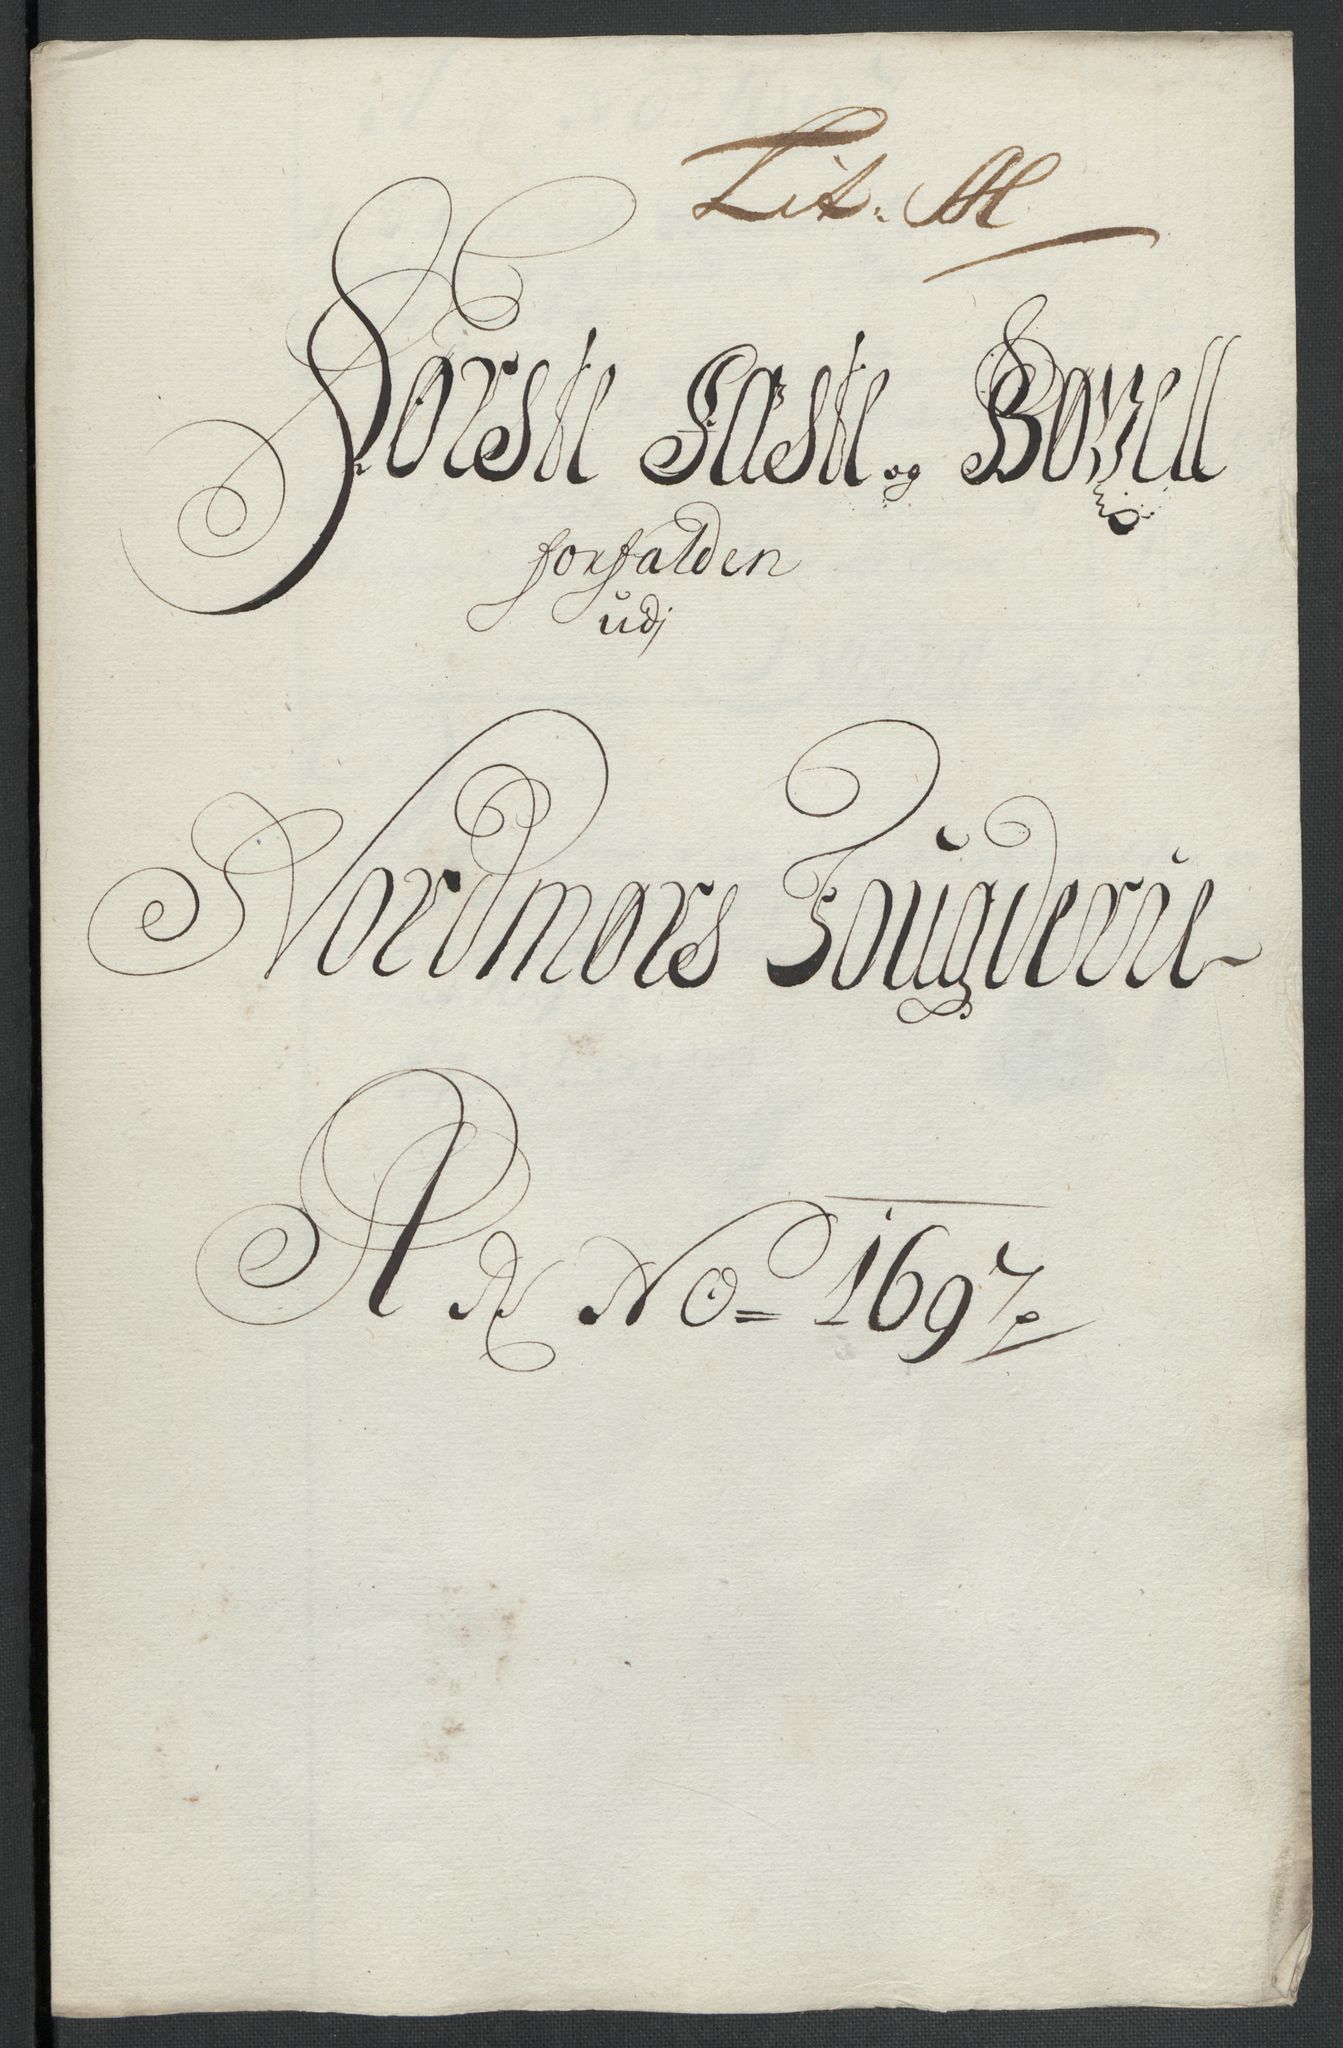 Lit. M
Første Fæste og Bøxell
forfalden
udj
Nordmørs Fougderie
ANNO= 1697